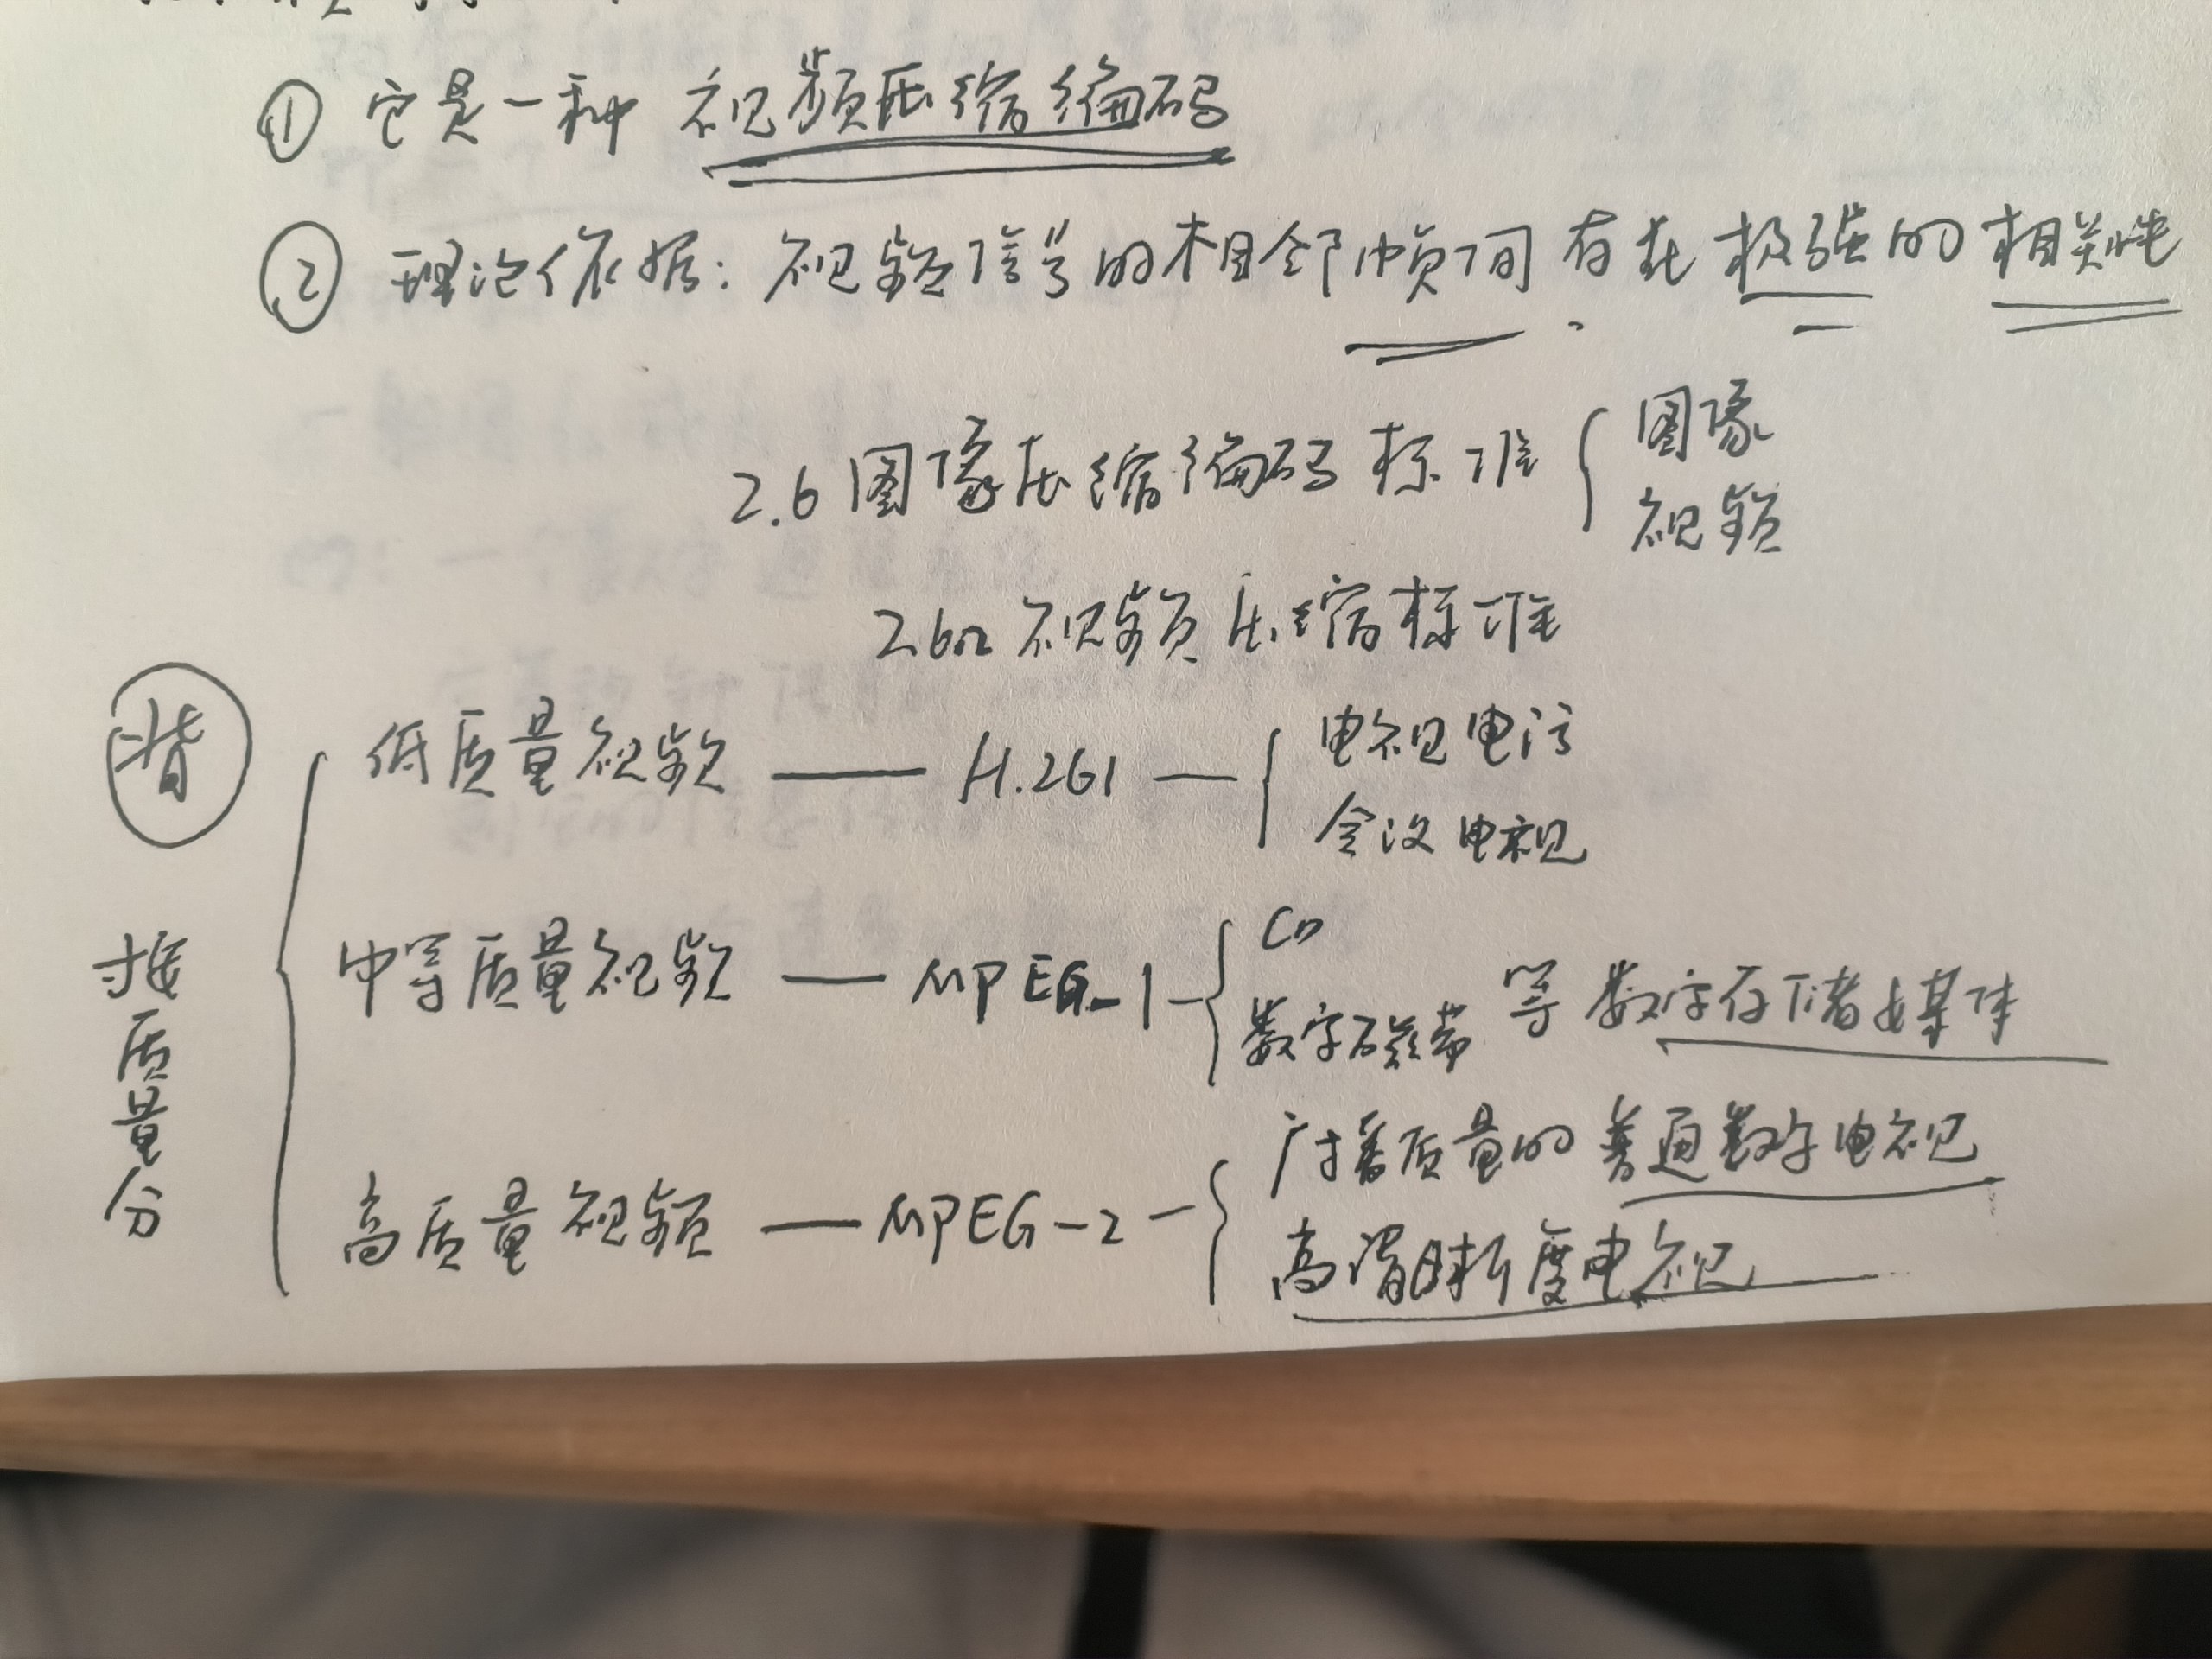 ① 它是一种 视频压缩编码
② 理论依据：视频信号的相邻帧间存在极强的相关性
2.6 图像压缩编码标准 { 图像
视频
2.6.2 视频压缩标准
背
按质量分
低质量视频 —— H.261 — { 电视电话
会议电视
中等质量视频 — MPEG-1 — { CD
数字磁带 等数字存储媒体
高质量视频 — MPEG-2 — { 广播质量的普通数字电视
高清晰度电视